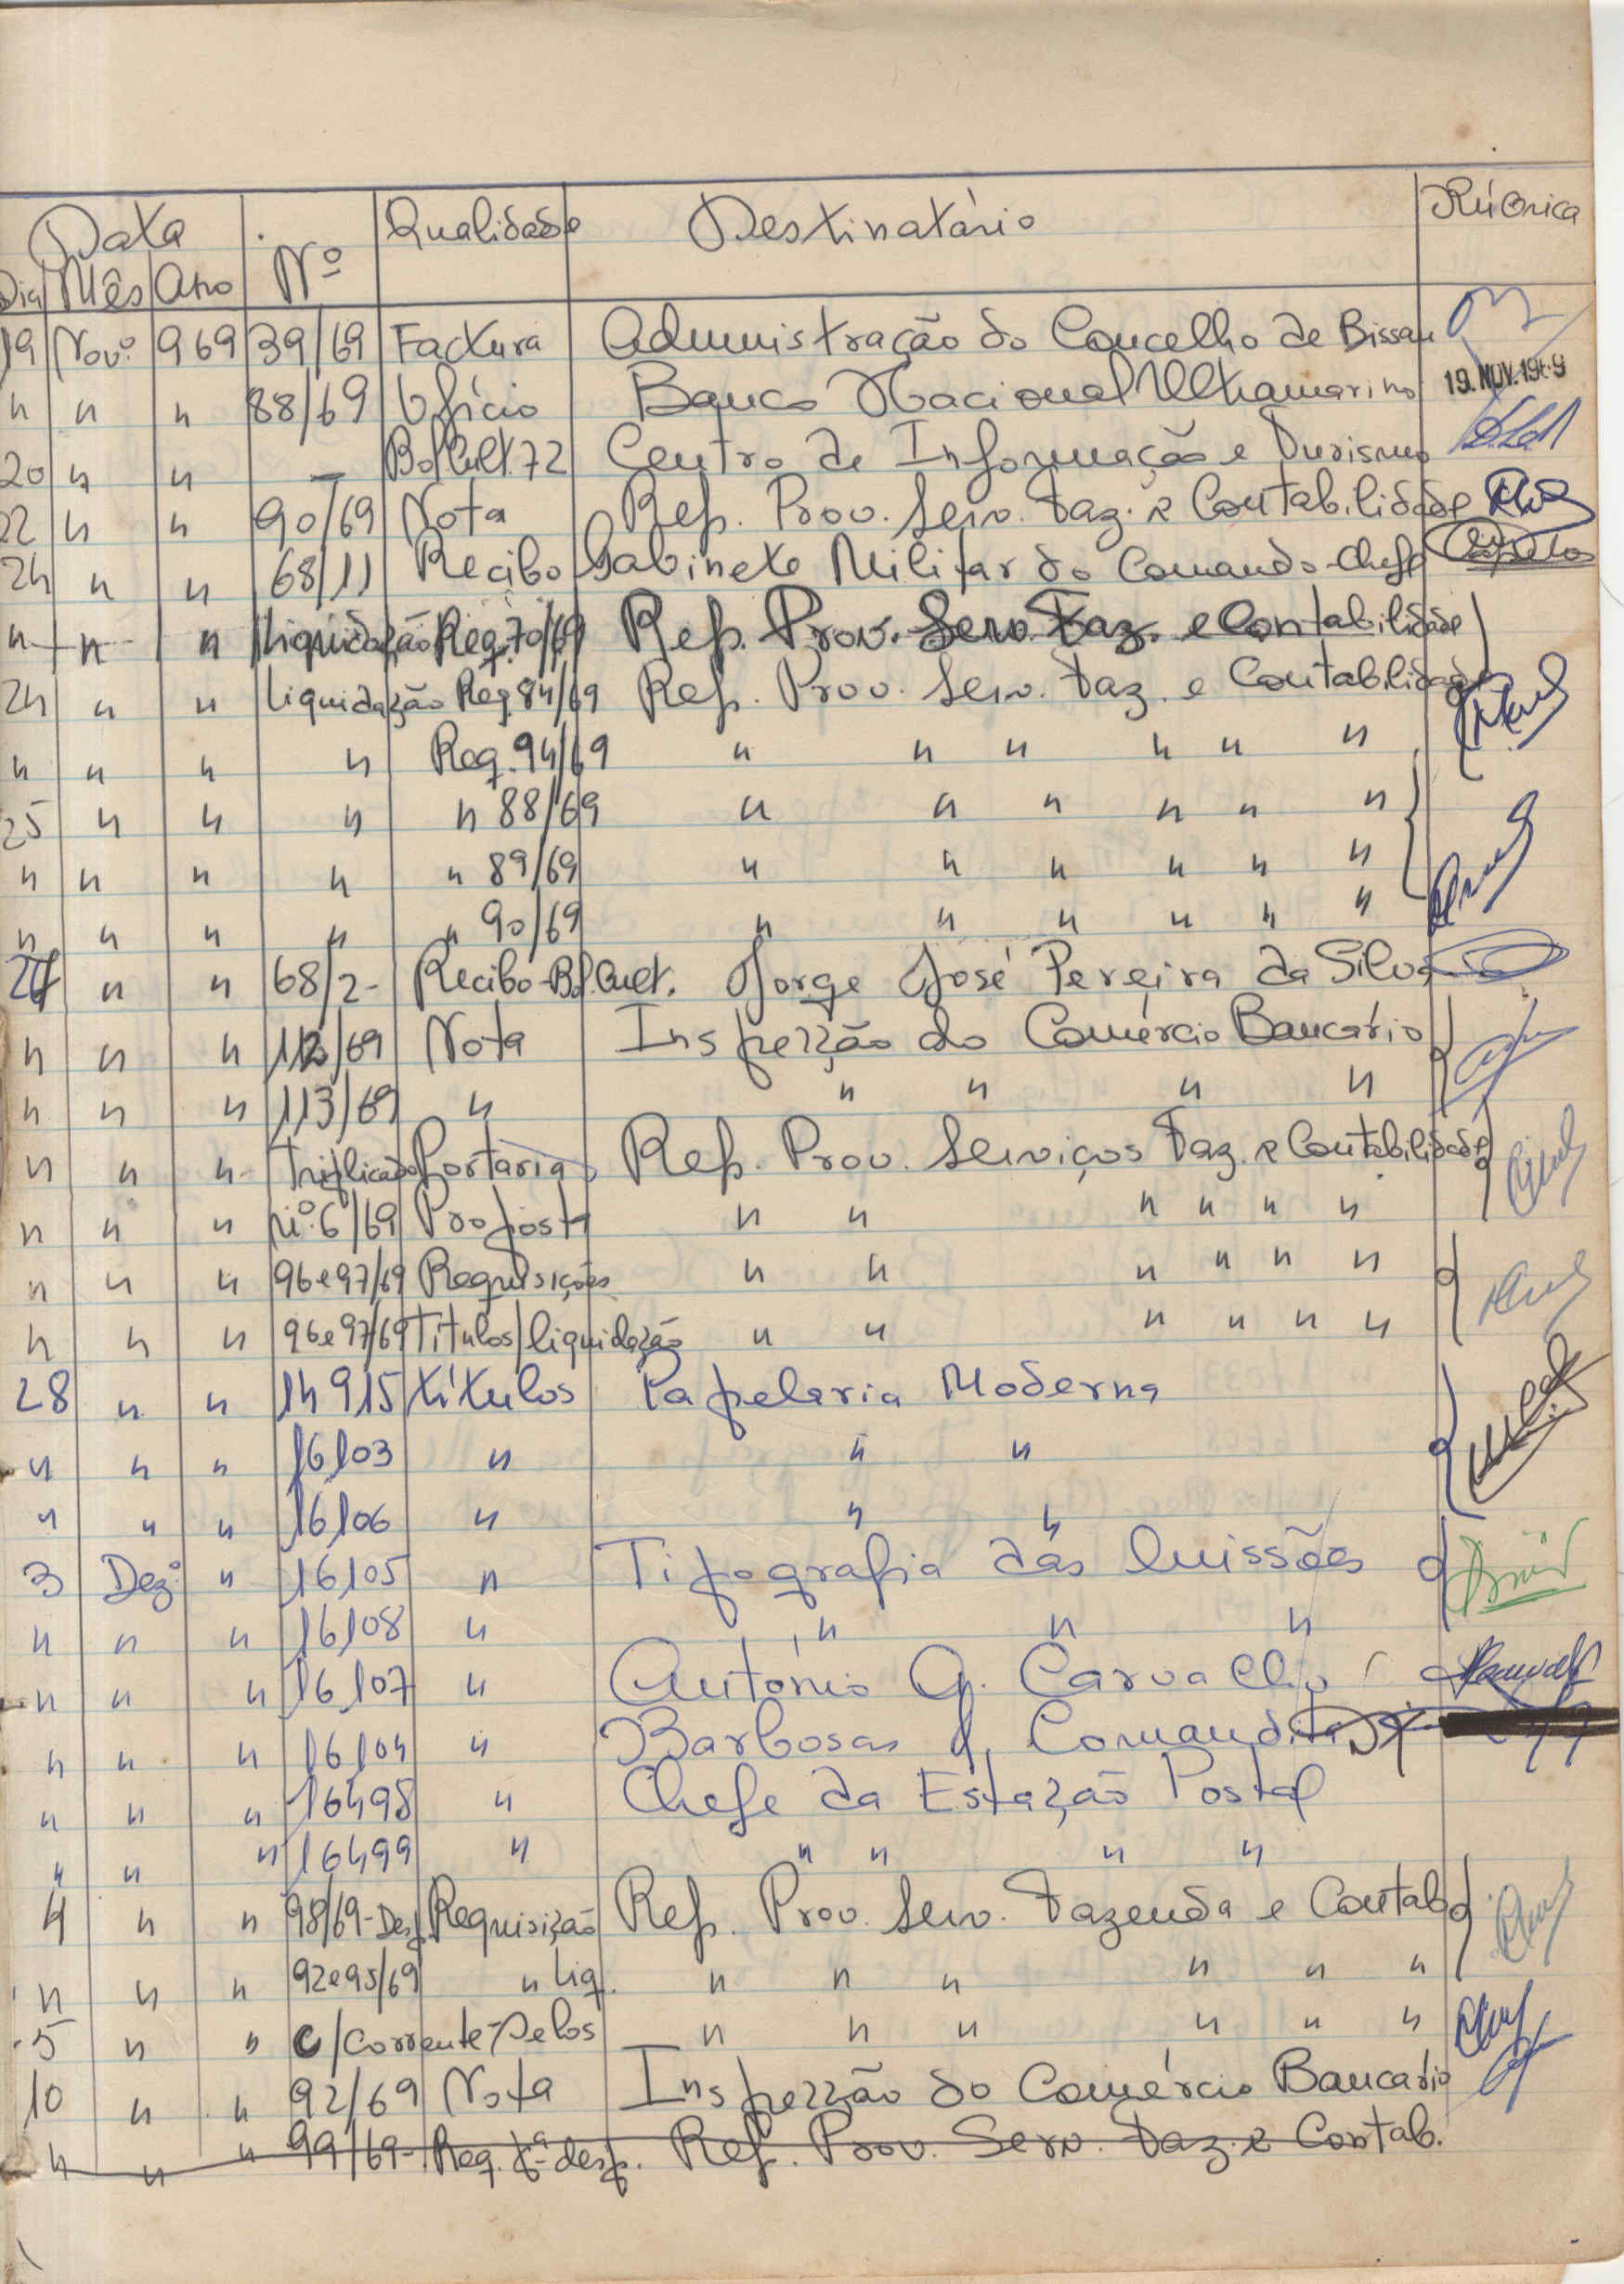 Data Nº Qualidade Destinatário Rúbrica
Dia Mês Ano
19 Novº. 969 39/69 Factura Administração do Concelho de Bissau
" " " 88/69 Ofício Banco Nacional Ultramarino 19.NOV.1969
20 " " — Bol. Cult. 72 Centro de Informação e Turismo
22 " " 90/69 Nota Rep. Prov. Serv. Faz. e Contabilidade
24 " " 68/11 Recibo Gabinete Militar do Comando-Chefe
" " " Liquidação Req. 70/69 Rep. Prov. Serv. Faz. e Contabilidade
24 " " Liquidação Req. 84/69 Rep. Prov. Serv. Faz. e Contabilidade
" " " " Req. 94/69 " " " " " "
25 " " " " 88/69 " " " " " "
" " " " " 89/69 " " " " " "
" " " " " 90/69 " " " " " "
" " 68/2- Recibo-Bol. Cult. Jorge José Pereira da Silva
" " " 112/69 Nota Inspecção do Comércio Bancário
" " " 113/69 " " " " "
" " " Triplicado Portaria Rep. Prov. Serviços Faz. e Contabilidade
" " " nº. 6/69 Proposta " " " " " "
" " " 96e97/69 Requisições " " " " " "
" " " 96e97/69 Títulos/liquidação " " " " " "
28 " " 14915 títulos Papelaria Moderna
" " " 16103 " " "
" " " 16106 " " "
3 Dezº. " 16105 " Tipografia das Missões
" " " 16108 " " " "
" " " 16107 " António G. Carvalho
" " " 16104 " Barbosas & Comandita
" " " 16498 " Chefe da Estação Postal
" " " 16499 " " " " "
4 " " 98/69-Desp. Requisição Rep. Prov. Serv. Fazenda e Contab.
" " " 92e95/69 " Liq. " " " " " "
5 " " C/Corrente-Selos " " " " " "
10 " " 92/69 Nota Inspecção do Comércio Bancário
" " " 99/69- Req. pª- desp. Rep. Prov. Serv. Faz. e Contab.